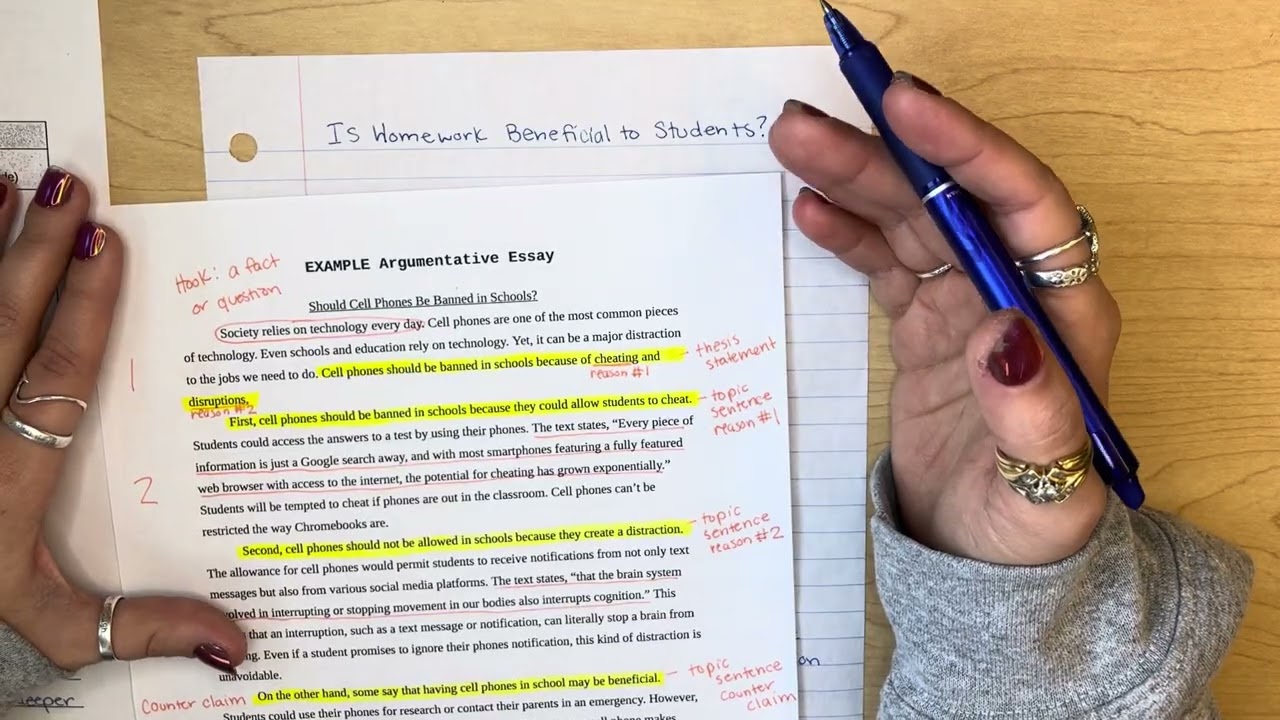 Is Homework Beneficial to Students?
EXAMPLE Argumentative Essay
Hook: a fact
or question
Should Cell Phones Be Banned in Schools?
Society relies on technology every day. Cell phones are one of the most common pieces
of technology. Even schools and education rely on technology. Yet, it can be a major distraction
to the jobs we need to do. Cell phones should be banned in schools because of cheating and
thesis
statement
1
reason #1
disruptions,
reason #2
First, cell phones should be banned in schools because they could allow students to cheat.
topic
sentence
reason #1
Students could access the answers to a test by using their phones. The text states, “Every piece of
information is just a Google search away, and with most smartphones featuring a fully featured
web browser with access to the internet, the potential for cheating has grown exponentially.”
2
Students will be tempted to cheat if phones are out in the classroom. Cell phones can’t be
restricted the way Chromebooks are.
Second, cell phones should not be allowed in schools because they create a distraction.
topic
sentence
reason #2
The allowance for cell phones would permit students to receive notifications from not only text
messages but also from various social media platforms. The text states, “that the brain system
in interrupting or stopping movement in our bodies also interrupts cognition.” This
that an interruption, such as a text message or notification, can literally stop a brain from
Even if a student promises to ignore their phones notification, this kind of distraction is
unavoidable.
Counter claim
On the other hand, some say that having cell phones in school may be beneficial.
topic
sentence
counter
claim
Students could use their phones for research or contact their parents in an emergency. However,